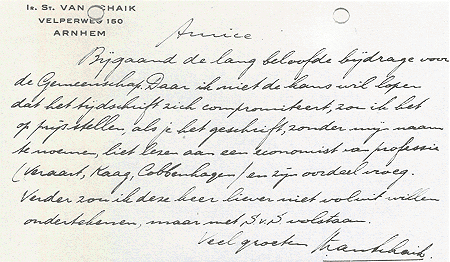 Ir. St. VAN SCHAIK
VELPERWEG 150
ARNHEM
Amice.
Bijgaand de lang beloofde bijdrage voor
de Gemeenschap. Daar ik niet de kans wil lopen
dat het tijdschrift zich compromiteert, zou ik het
op prijs stellen, als je het geschrift, zonder mijn naam
te noemen, liet lezen aan een economist van professie
(Veraart, Kaag, Cobbenhagen) en zijn oordeel vroeg.
Verder zou ik deze keer liever niet voluit willen
ondertekenen, maar met S.v.S volstaan.
Veel groeten
StvanSchaik.